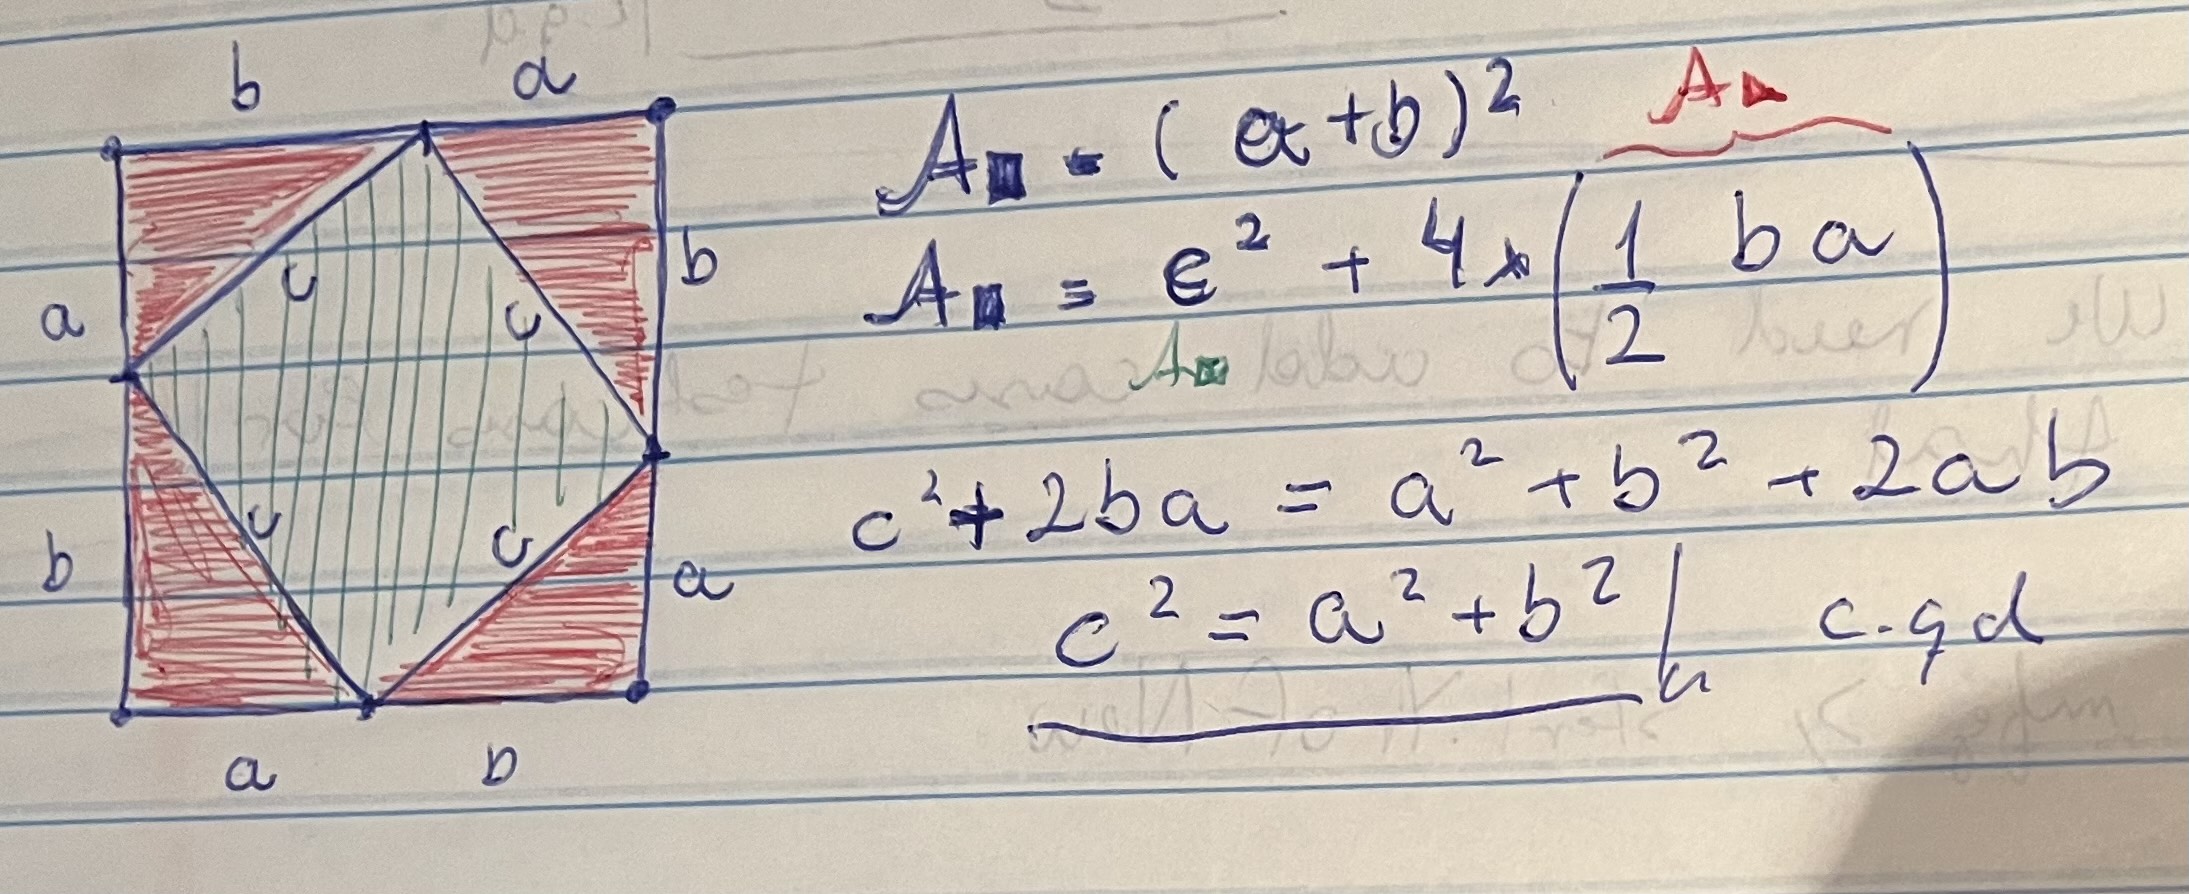 b a
a b
c c
c c
b a
a b
A■ = (a+b)²
A▶
A■ = c² + 4 × (1/2 b a)
A■
c² + 2ba = a² + b² + 2ab
c² = a² + b² c.q d